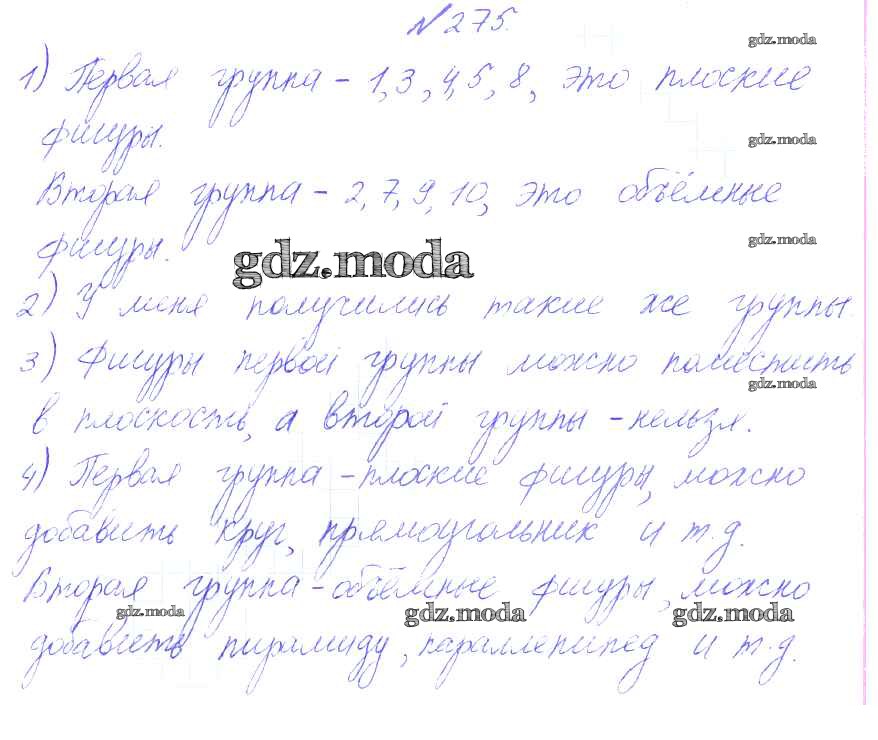 №275.
gdz.moda
1) Первая группа - 1,3,4,5,8, это плоские
фигуры.
gdz.moda
Вторая группа - 2,7,9,10, это объёмные
gdz.moda
фигуры.
gdz.moda
2) У меня получились такие же группы.
3) Фигуры первой группы можно поместить
gdz.moda
в плоскость, а второй группы - нельзя.
4) Первая группа - плоские фигуры, можно
добавить круг, прямоугольник и т.д.
Вторая группа - объёмные фигуры, можно
gdz.moda gdz.moda gdz.moda
добавить пирамиду, параллепипед и т.д.